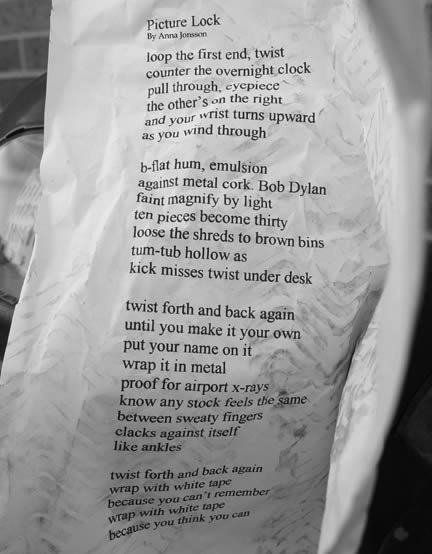 Picture Lock
By Anna Jonsson
loop the first end, twist
counter the overnight clock
pull through, eyepiece
the other's on the right
and your wrist turns upward
as you wind through
b-flat hum, emulsion
against metal cork. Bob Dylan
faint magnify by light
ten pieces become thirty
loose the shreds to brown bins
tum-tub hollow as
kick misses twist under desk
twist forth and back again
until you make it your own
put your name on it
wrap it in metal
proof for airport x-rays
know any stock feels the same
between sweaty fingers
clacks against itself
like ankles
twist forth and back again
wrap with white tape
because you can't remember
wrap with white tape
because you think you can